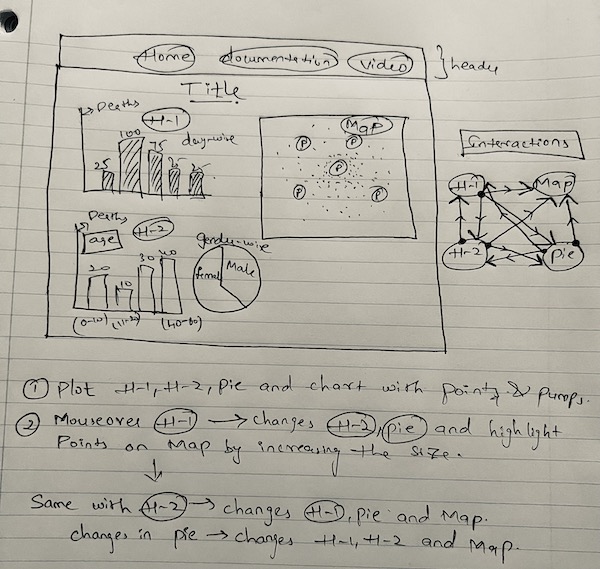 Home documentation Video
header
Title
Deaths
H-1
day-wise
100
75
25
25
Map
P
P
P
P
P
Interactions
H-1 Map
H-2 Pie
Deaths
age
H-2
gender-wise
20
10
30
40
Female
Male
(0-10)
(11-20)
(40-60)
① Plot H-1, H-2, Pie and chart with points & pumps.
② Mouseover H-1 → changes H-2, pie and highlight
Points on Map by increasing the size.
↓
Same with H-2 → changes H-1, pie and Map.
changes in pie → changes H-1, H-2 and Map.